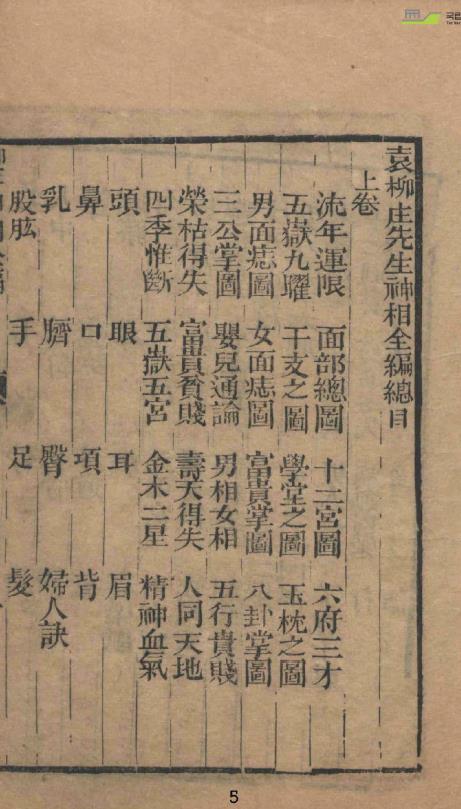 袁柳庄先生神相全編總目
上卷
流年運限 面部總圖 十二宮圖 六府三才
五嶽九曜 干支之圖 學堂之圖 玉枕之圖
男面痣圖 女面痣圖 富貴掌圖 八卦掌圖
三公掌圖 嬰兒通論 男相女相 五行貴賤
榮枯得失 富貴貧賤 壽夭得失 人同天地
四季惟斷 五嶽五宮 金木二星 精神血氣
頭 眼 耳 眉
鼻 口 項 背
乳 臍 臀 婦人訣
股肱 手 足 髮
5